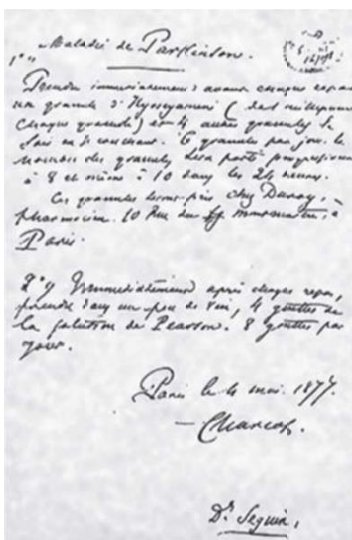 Maladie de Parkinson.
1°
Prendre immédiatement avant chaque repas
un granule d'Hyosyamine (
chaque granule) et 4 granules le
soir en se couchant. 6 granules par jour. le
nombre des granules sera porté
à 8 et même à 10 dans les 24 heures.
Ces granules chez Duroy,
pharmacien. 10 Rue du , à
Paris.
2° Immédiatement après chaque repas,
prendre dans un peu de vin, 4 gouttes de
la solution de Pearson. 8 gouttes par
jour.
Paris le 4 mai. 1877.
Charcot.
Dr Seguin,